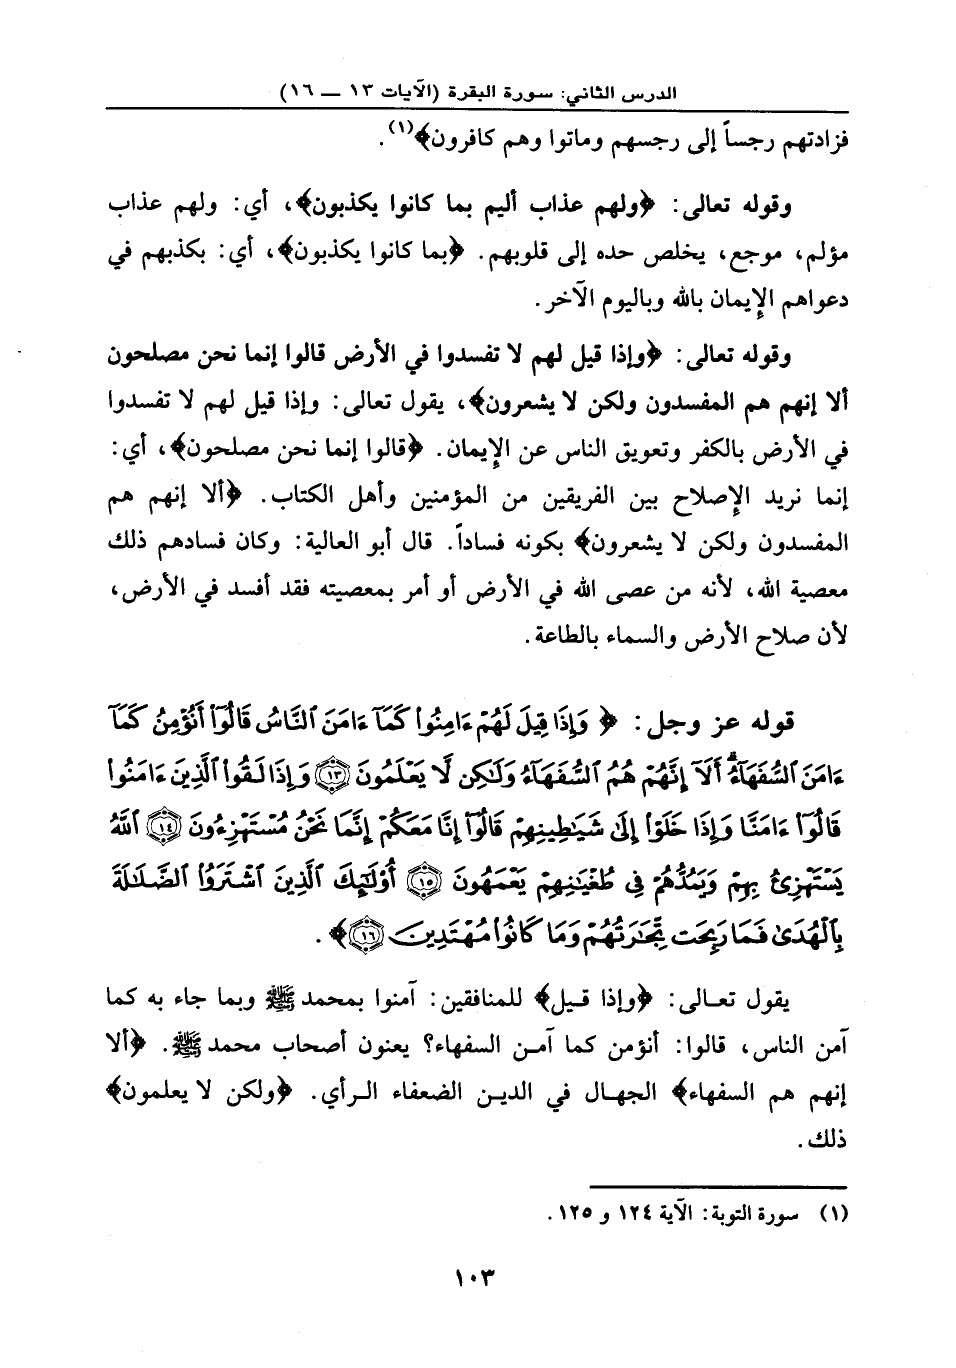 الدرس الثاني: سورة البقرة (الآيات ١٣ — ١٦)
فزادتهم رجساً إلى رجسهم وماتوا وهم كافرون﴾(١).
وقوله تعالى: ﴿ولهم عذاب أليم بما كانوا يكذبون﴾، أي: ولهم عذاب
مؤلم، موجع، يخلص حده إلى قلوبهم. ﴿بما كانوا يكذبون﴾، أي: بكذبهم في
دعواهم الإيمان بالله وباليوم الآخر.
وقوله تعالى: ﴿وإذا قيل لهم لا تفسدوا في الأرض قالوا إنما نحن مصلحون
ألا إنهم هم المفسدون ولكن لا يشعرون﴾، يقول تعالى: وإذا قيل لهم لا تفسدوا
في الأرض بالكفر وتعويق الناس عن الإيمان. ﴿قالوا إنما نحن مصلحون﴾، أي:
إنما نريد الإصلاح بين الفريقين من المؤمنين وأهل الكتاب. ﴿ألا إنهم هم
المفسدون ولكن لا يشعرون﴾ بكونه فساداً. قال أبو العالية: وكان فسادهم ذلك
معصية الله، لأنه من عصى الله في الأرض أو أمر بمعصيته فقد أفسد في الأرض،
لأن صلاح الأرض والسماء بالطاعة.
قوله عز وجل: ﴿ وَإِذَا قِيلَ لَهُمْ ءَامِنُوا۟ كَمَآ ءَامَنَ ٱلنَّاسُ قَالُوٓا۟ أَنُؤْمِنُ كَمَآ
ءَامَنَ ٱلسُّفَهَآءُ ۗ أَلَآ إِنَّهُمْ هُمُ ٱلسُّفَهَآءُ وَلَٰكِن لَّا يَعْلَمُونَ ١٣ وَإِذَا لَقُوا۟ ٱلَّذِينَ ءَامَنُوا۟
قَالُوٓا۟ ءَامَنَّا وَإِذَا خَلَوْا۟ إِلَىٰ شَيَٰطِينِهِمْ قَالُوٓا۟ إِنَّا مَعَكُمْ إِنَّمَا نَحْنُ مُسْتَهْزِءُونَ ١٤ ٱللَّهُ
يَسْتَهْزِئُ بِهِمْ وَيَمُدُّهُمْ فِى طُغْيَٰنِهِمْ يَعْمَهُونَ ١٥ أُو۟لَٰٓئِكَ ٱلَّذِينَ ٱشْتَرَوُا۟ ٱلضَّلَٰلَةَ
بِٱلْهُدَىٰ فَمَا رَبِحَت تِّجَٰرَتُهُمْ وَمَا كَانُوا۟ مُهْتَدِينَ ١٦﴾.
يقول تعالى: ﴿وإذا قيل﴾ للمنافقين: آمنوا بمحمد ﷺ وبما جاء به كما
آمن الناس، قالوا: أنؤمن كما آمن السفهاء؟ يعنون أصحاب محمد ﷺ. ﴿ألا
إنهم هم السفهاء﴾ الجهال في الدين الضعفاء الرأي. ﴿ولكن لا يعلمون﴾
ذلك.
(١) سورة التوبة: الآية ١٢٤ و ١٢٥.
١٠٣